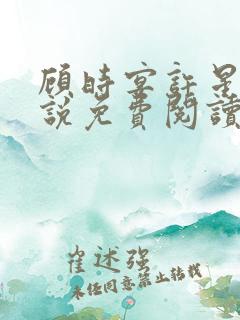 顾时宴許星
說免費閱讀
崔述强
未任同意禁止轉載